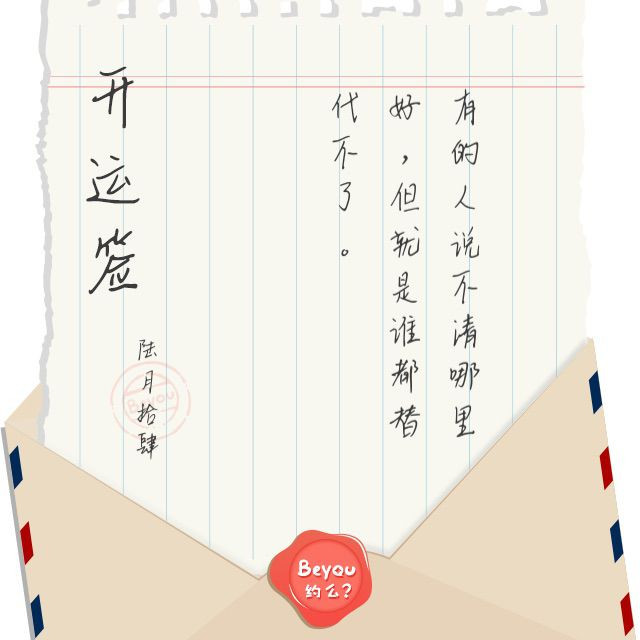 有的人说不清哪里
好，但就是谁都替
代不了。
开运签
陆月拾肆
Beyou
Beyou
约么？